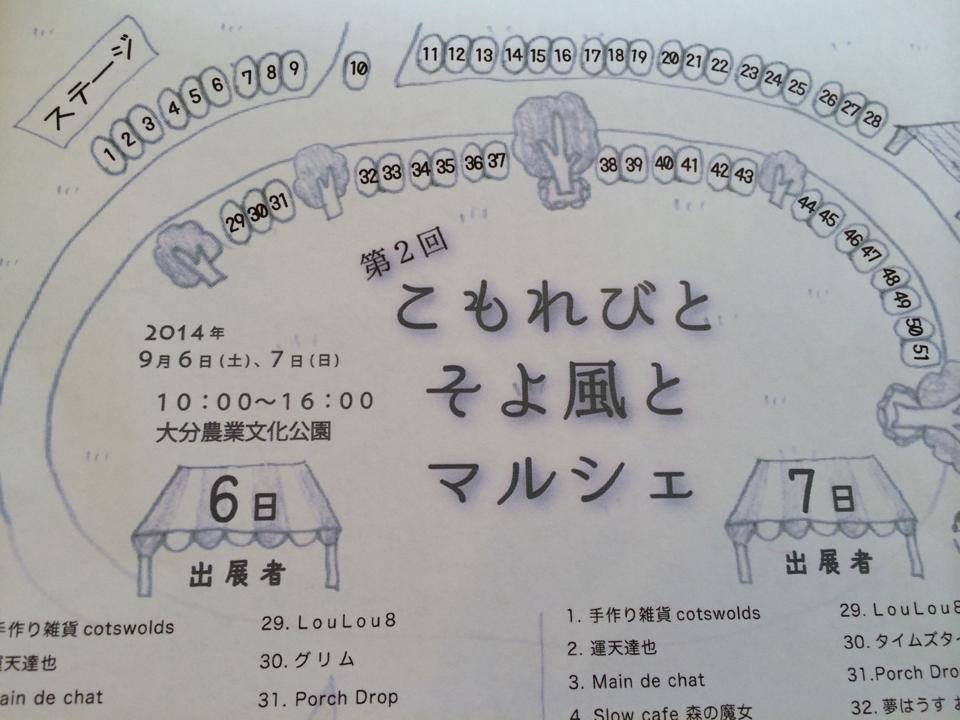 ステージ
1 2 3 4 5 6 7 8 9 10 11 12 13 14 15 16 17 18 19 20 21 22 23 24 25 26 27 28
29 30 31 32 33 34 35 36 37 38 39 40 41 42 43 44 45 46 47 48 49 50 51
第2回
こもれびと
そよ風と
マルシェ
2014年
9月6日(土)、7日(日)
10:00〜16:00
大分農業文化公園
6日
出展者
手作り雑貨 cotswolds
運天達也
Main de chat
29. LouLou8
30. グリム
31. Porch Drop
7日
出展者
1. 手作り雑貨 cotswolds
2. 運天達也
3. Main de chat
4. Slow cafe 森の魔女
29. LouLou8
30. タイムズタイ
31.Porch Dro
32. 夢はうす